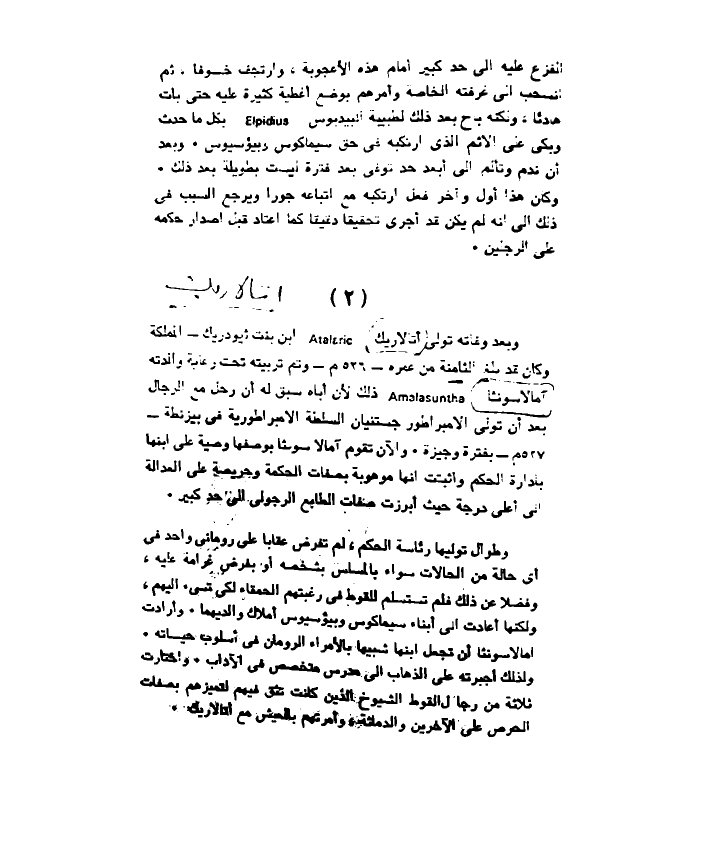 الفزع عليه الى حد كبير أمام هذه الأعجوبة ، وارتجف خـوفا . ثم
انسحب الى غرفته الخاصة وأمرهم بوضع أغطية كثيرة عليه حتى بات
هدئا ، ولكنه باح بعد ذلك لطبيبه البيديوس Elpidius بكل ما حدث
وبكى على الاثم الذى ارتكبه فى حق سيماكوس وبيؤسيوس . وبعد
أن ندم وتألم الى أبعد حد توفى بعد فترة ليست بطويلة بعد ذلك .
وكان هذا أول وآخر فعل ارتكبه مع اتباعه جورا ويرجع السبب فى
ذلك الى انه لم يكن قد أجرى تحقيقا دقيقا كما اعتاد قبل اصدار حكمه
على الرجلين .
(٢) اتالاريك
وبعد وفاته تولى أتالاريك Atalaric ابن بنت ثيودريك – المملكة
وكان قد بلغ الثامنة من عمره – ٥٢٦ م – وتم تربيته تحت رعاية والدته
آمالاسونثا Amalasuntha ذلك لأن أباه سبق له أن رحل مع الرجال
بعد أن تولى الامبراطور جستنيان السلطة الامبراطورية فى بيزنطة –
٥٢٧م – بفترة وجيزة . والآن تقوم آمالا سونثا بوصفها وصية على ابنها
بادارة الحكم واثبتت انها موهوبة بصفات الحكمة وحريصة على العدالة
الى أعلى درجة حيث أبرزت صفات الطابع الرجولى الى حد كبير .
وطوال توليها رئاسة الحكم ، لم تفرض عقابا على رومانى واحد فى
أى حالة من الحالات سواء بالمساس بشخصه أو بفرض غرامة عليه ،
وفضلا عن ذلك فلم تستسلم للقوط فى رغبتهم الحمقاء لكى تسىء اليهم ،
ولكنها أعادت الى أبناء سيماكوس وبيؤسيوس أملاك والديهما . وأرادت
امالاسونثا أن تجعل ابنها شبيها بالأمراء الرومان فى أسلوب حيـاته .
ولذلك أجبرته على الذهاب الى مدرس متخصص فى الآداب . واختارت
ثلاثة من رجال القوط الشيوخ الذين كانت تثق فيهم لتميزهم بصفات
الحرص على الآخرين والدماثة وأمرتهم بالعيش مع أتالاريك .